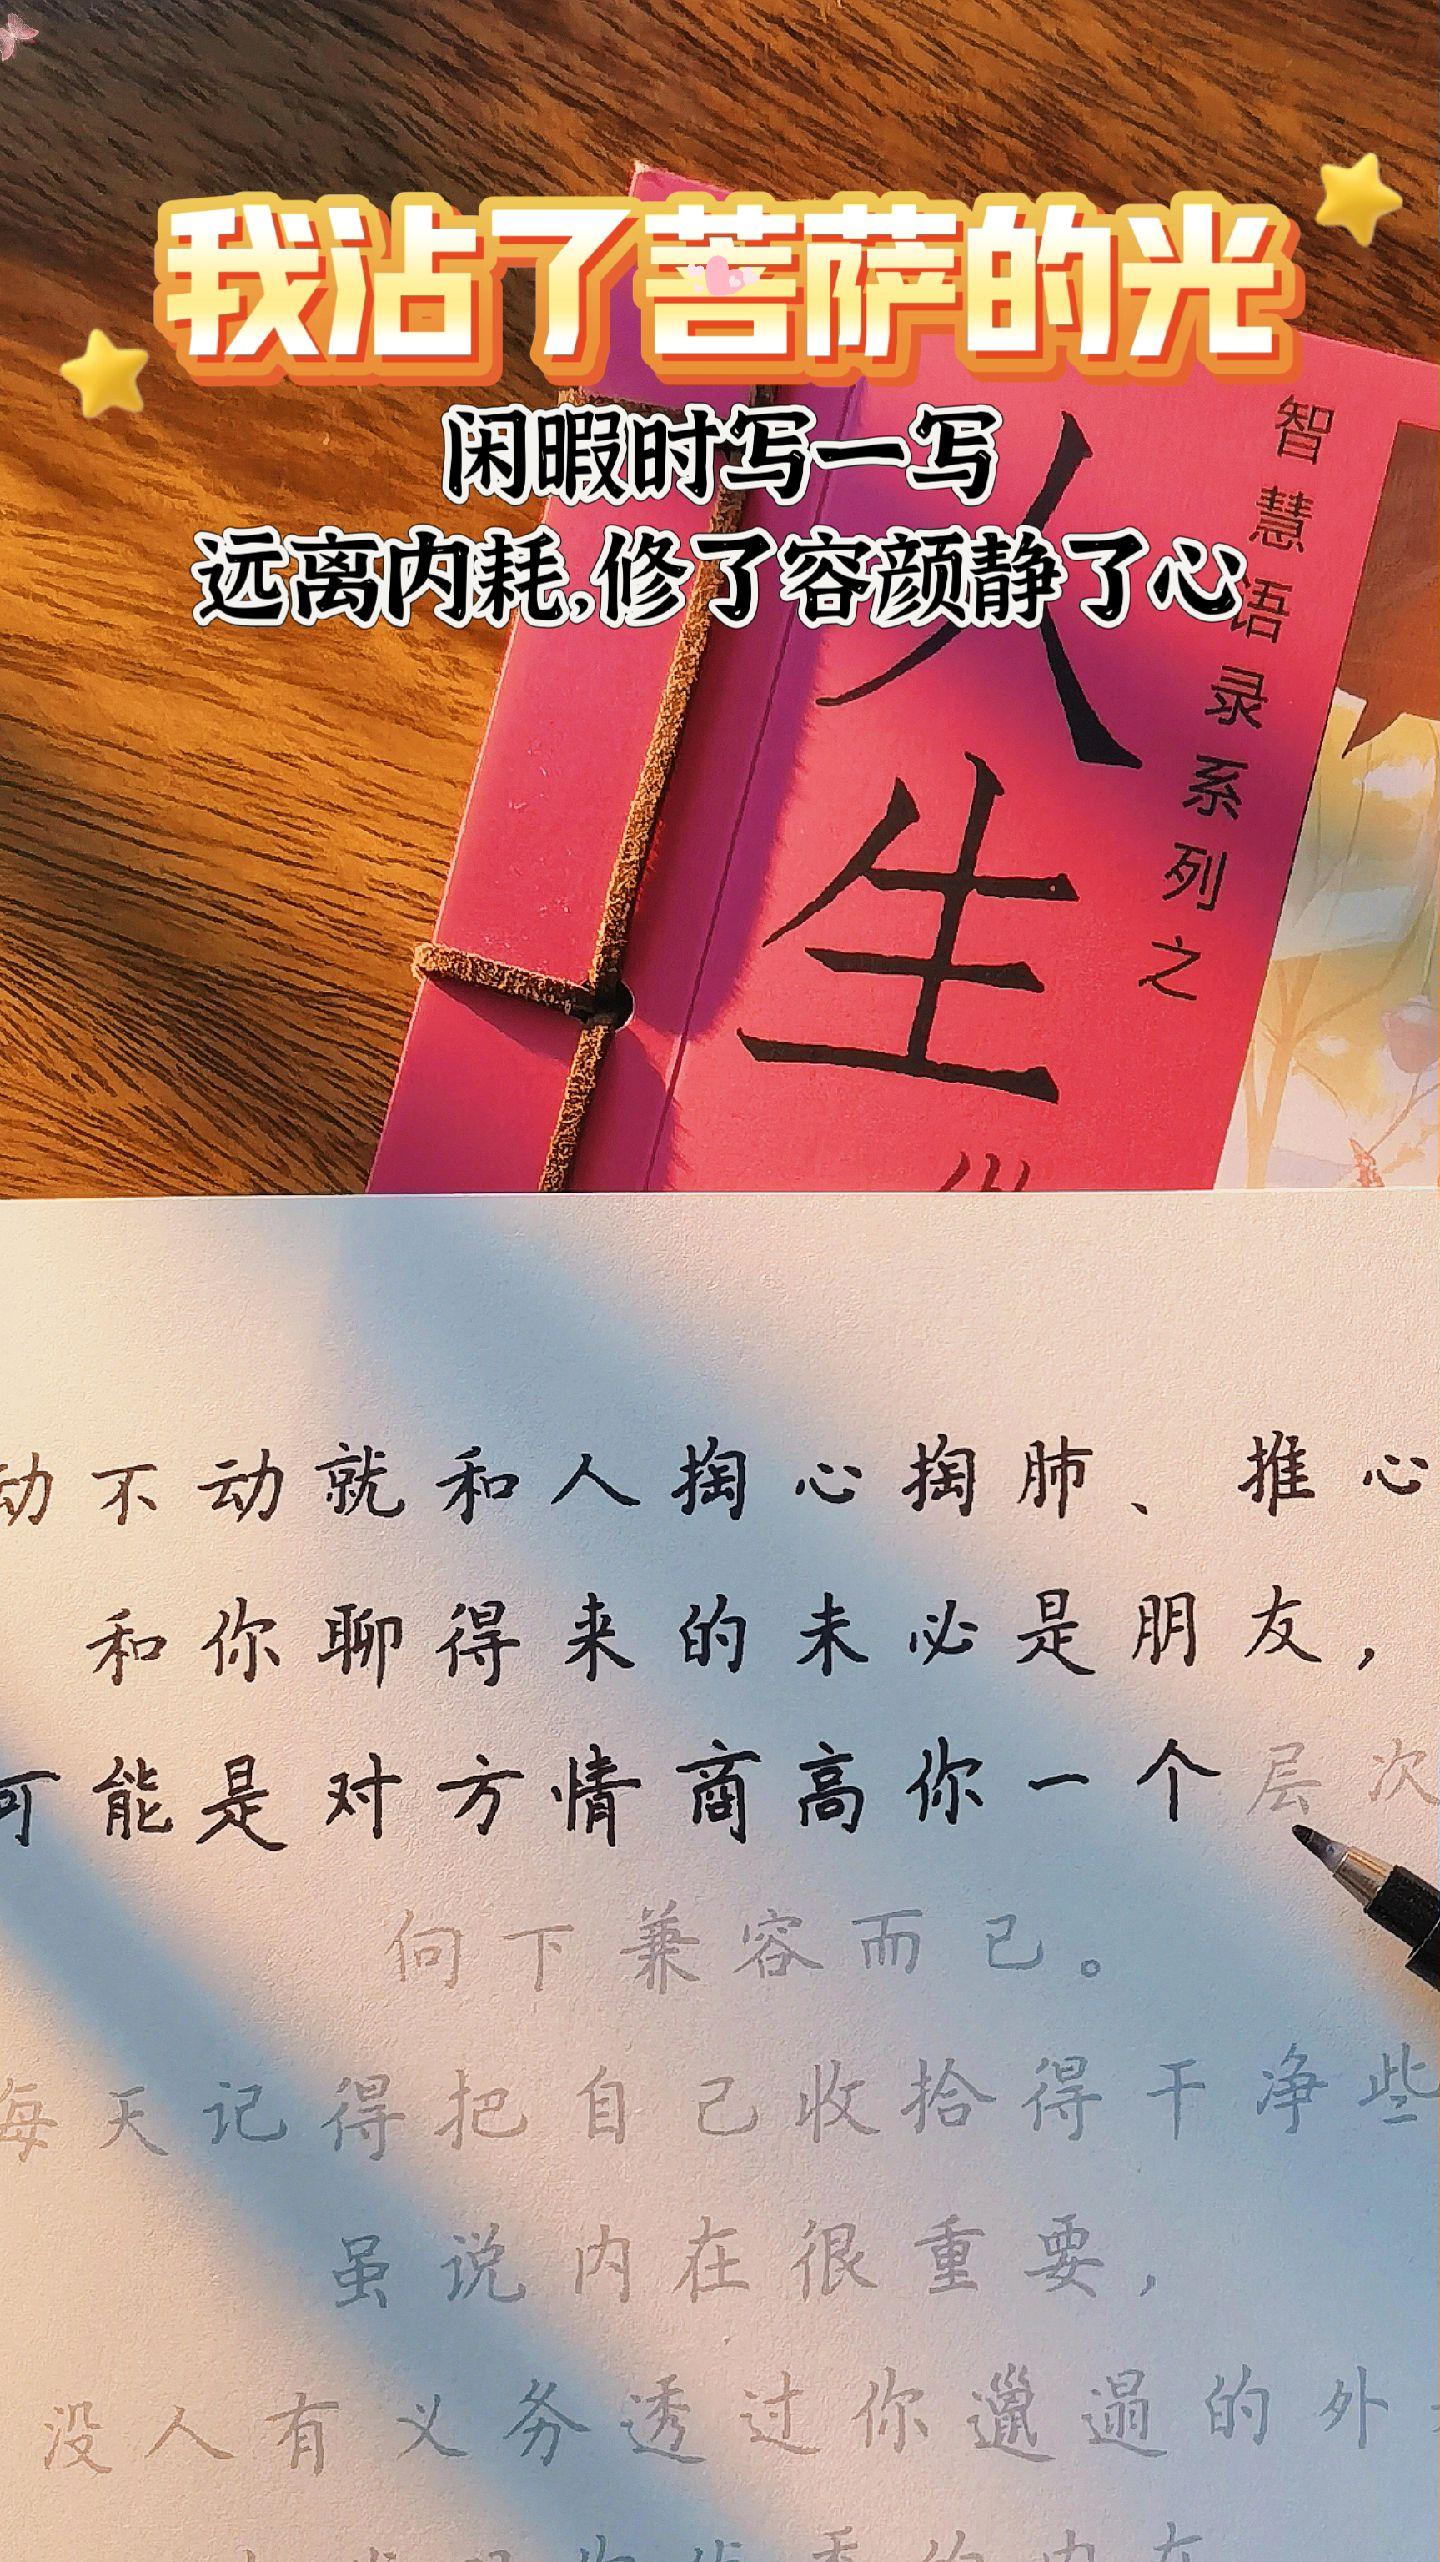 我沾了菩萨的光
闲暇时写一写
远离内耗,修了容颜静了心
智慧语录系列之
人生
动不动就和人掏心掏肺、推心
和你聊得来的未必是朋友，
可能是对方情商高你一个层次
向下兼容而已。
每天记得把自己收拾得干净些
虽说内在很重要，
没人有义务透过你邋遢的外